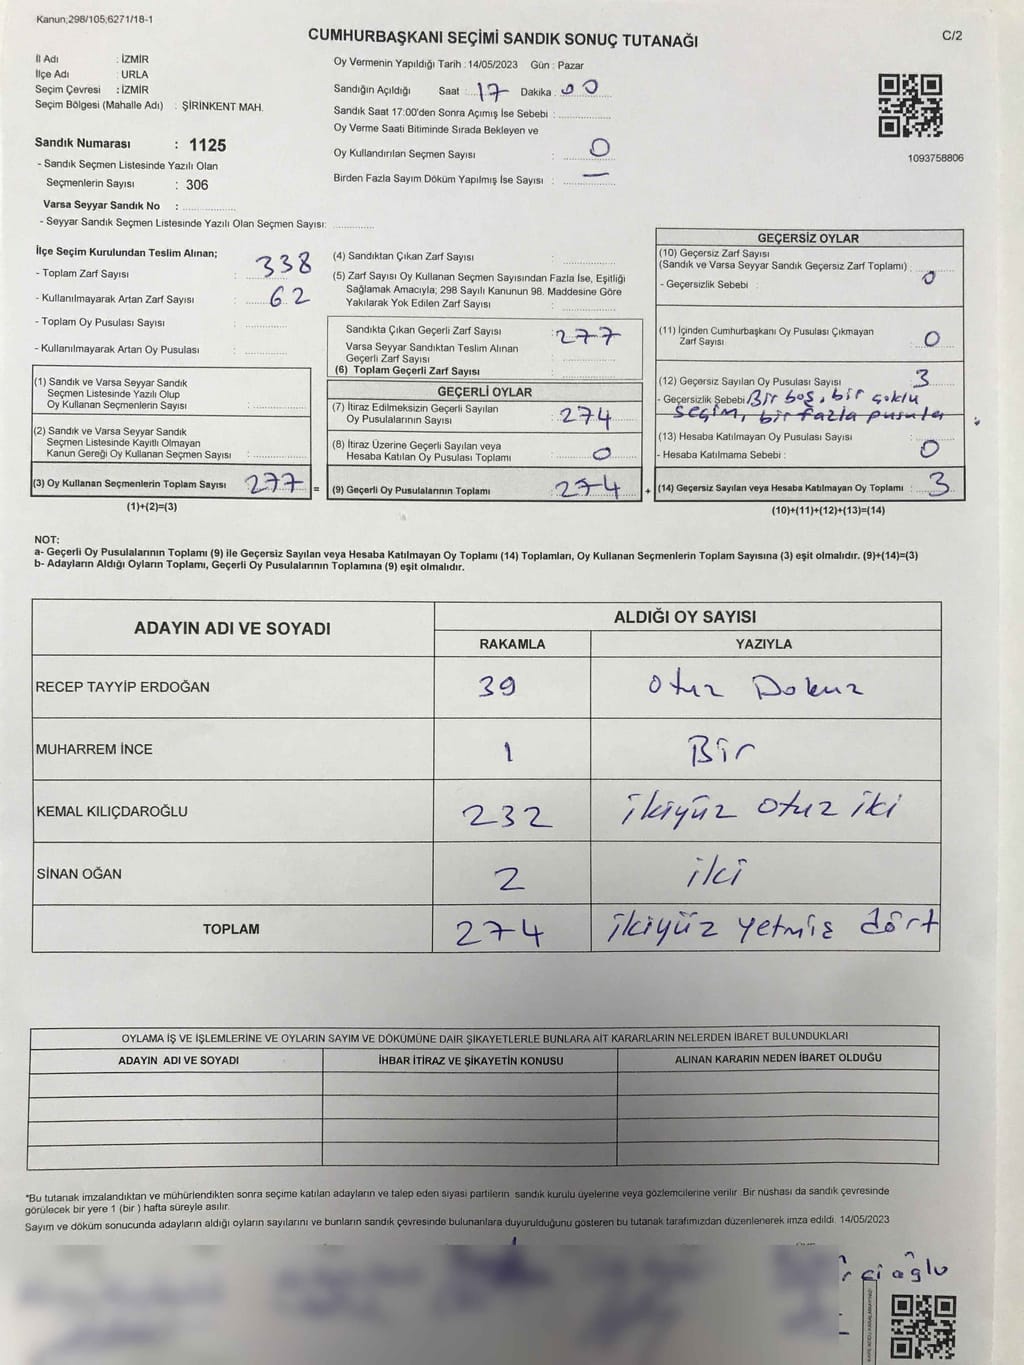 Kanun;298/105;6271/18-1
CUMHURBAŞKANI SEÇİMİ SANDIK SONUÇ TUTANAĞI
C/2
İl Adı : İZMİR
İlçe Adı : URLA
Seçim Çevresi : İZMİR
Seçim Bölgesi (Mahalle Adı) : ŞİRİNKENT MAH.
Sandık Numarası : 1125
- Sandık Seçmen Listesinde Yazılı Olan
Seçmenlerin Sayısı : 306
Varsa Seyyar Sandık No :
- Seyyar Sandık Seçmen Listesinde Yazılı Olan Seçmen Sayısı:
Oy Vermenin Yapıldığı Tarih : 14/05/2023 Gün : Pazar
Sandığın Açıldığı Saat : 17 Dakika : 00
Sandık Saat 17:00'den Sonra Açımış İse Sebebi :
Oy Verme Saati Bitiminde Sırada Bekleyen ve
Oy Kullandırılan Seçmen Sayısı : 0
Birden Fazla Sayım Döküm Yapılmış İse Sayısı : —
1093758806
İlçe Seçim Kurulundan Teslim Alınan;
- Toplam Zarf Sayısı : 338
- Kullanılmayarak Artan Zarf Sayısı : 62
- Toplam Oy Pusulası Sayısı :
- Kullanılmayarak Artan Oy Pusulası :
(1) Sandık ve Varsa Seyyar Sandık
Seçmen Listesinde Yazılı Olup
Oy Kullanan Seçmenlerin Sayısı :
(2) Sandık ve Varsa Seyyar Sandık
Seçmen Listesinde Kayıtlı Olmayan
Kanun Gereği Oy Kullanan Seçmen Sayısı :
(3) Oy Kullanan Seçmenlerin Toplam Sayısı 277 =
(1)+(2)=(3)
(4) Sandıktan Çıkan Zarf Sayısı :
(5) Zarf Sayısı Oy Kullanan Seçmen Sayısından Fazla İse, Eşitliği
Sağlamak Amacıyla; 298 Sayılı Kanunun 98. Maddesine Göre
Yakılarak Yok Edilen Zarf Sayısı :
Sandıkta Çıkan Geçerli Zarf Sayısı : 277
Varsa Seyyar Sandıktan Teslim Alınan
Geçerli Zarf Sayısı :
(6) Toplam Geçerli Zarf Sayısı :
GEÇERLİ OYLAR
(7) İtiraz Edilmeksizin Geçerli Sayılan
Oy Pusulalarının Sayısı : 274
(8) İtiraz Üzerine Geçerli Sayılan veya
Hesaba Katılan Oy Pusulası Toplamı : 0
(9) Geçerli Oy Pusulalarının Toplamı : 274 +
GEÇERSİZ OYLAR
(10) Geçersiz Zarf Sayısı
(Sandık ve Varsa Seyyar Sandık Geçersiz Zarf Toplamı) : 0
- Geçersizlik Sebebi :
(11) İçinden Cumhurbaşkanı Oy Pusulası Çıkmayan
Zarf Sayısı : 0
(12) Geçersiz Sayılan Oy Pusulası Sayısı : 3
- Geçersizlik Sebebi : Bir boş, bir çoklu
seçim, bir fazla pusula
(13) Hesaba Katılmayan Oy Pusulası Sayısı : 0
- Hesaba Katılmama Sebebi :
(14) Geçersiz Sayılan veya Hesaba Katılmayan Oy Toplamı : 3
(10)+(11)+(12)+(13)=(14)
NOT:
a- Geçerli Oy Pusulalarının Toplamı (9) ile Geçersiz Sayılan veya Hesaba Katılmayan Oy Toplamı (14) Toplamları, Oy Kullanan Seçmenlerin Toplam Sayısına (3) eşit olmalıdır. (9)+(14)=(3)
b- Adayların Aldığı Oyların Toplamı, Geçerli Oy Pusulalarının Toplamına (9) eşit olmalıdır.
ADAYIN ADI VE SOYADI
ALDIĞI OY SAYISI
RAKAMLA YAZIYLA
RECEP TAYYİP ERDOĞAN 39 Otuz Dokuz
MUHARREM İNCE 1 Bir
KEMAL KILIÇDAROĞLU 232 ikiyüz otuz iki
SİNAN OĞAN 2 iki
TOPLAM 274 ikiyüz yetmiş dört
OYLAMA İŞ VE İŞLEMLERİNE VE OYLARIN SAYIM VE DÖKÜMÜNE DAİR ŞİKAYETLERLE BUNLARA AİT KARARLARIN NELERDEN İBARET BULUNDUKLARI
ADAYIN ADI VE SOYADI İHBAR İTİRAZ VE ŞİKAYETİN KONUSU ALINAN KARARIN NEDEN İBARET OLDUĞU
*Bu tutanak imzalandıktan ve mühürlendikten sonra seçime katılan adayların ve talep eden siyasi partilerin sandık kurulu üyelerine veya gözlemcilerine verilir. Bir nüshası da sandık çevresinde
görülecek bir yere 1 (bir ) hafta süreyle asılır.
Sayım ve döküm sonucunda adayların aldığı oyların sayılarını ve bunların sandık çevresinde bulunanlara duyurulduğunu gösteren bu tutanak tarafımızdan düzenlenerek imza edildi. 14/05/2023